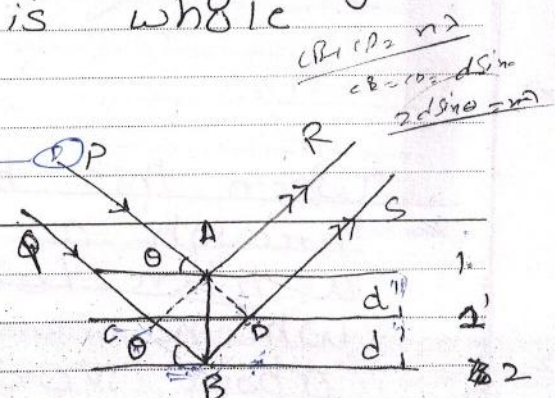 is whole
CB + CD = nλ
CB = CD = dSinθ
2dSinθ = nλ
P
R
S
Q
A
θ
1.
d'
C
D
1'
θ
d'
B
2